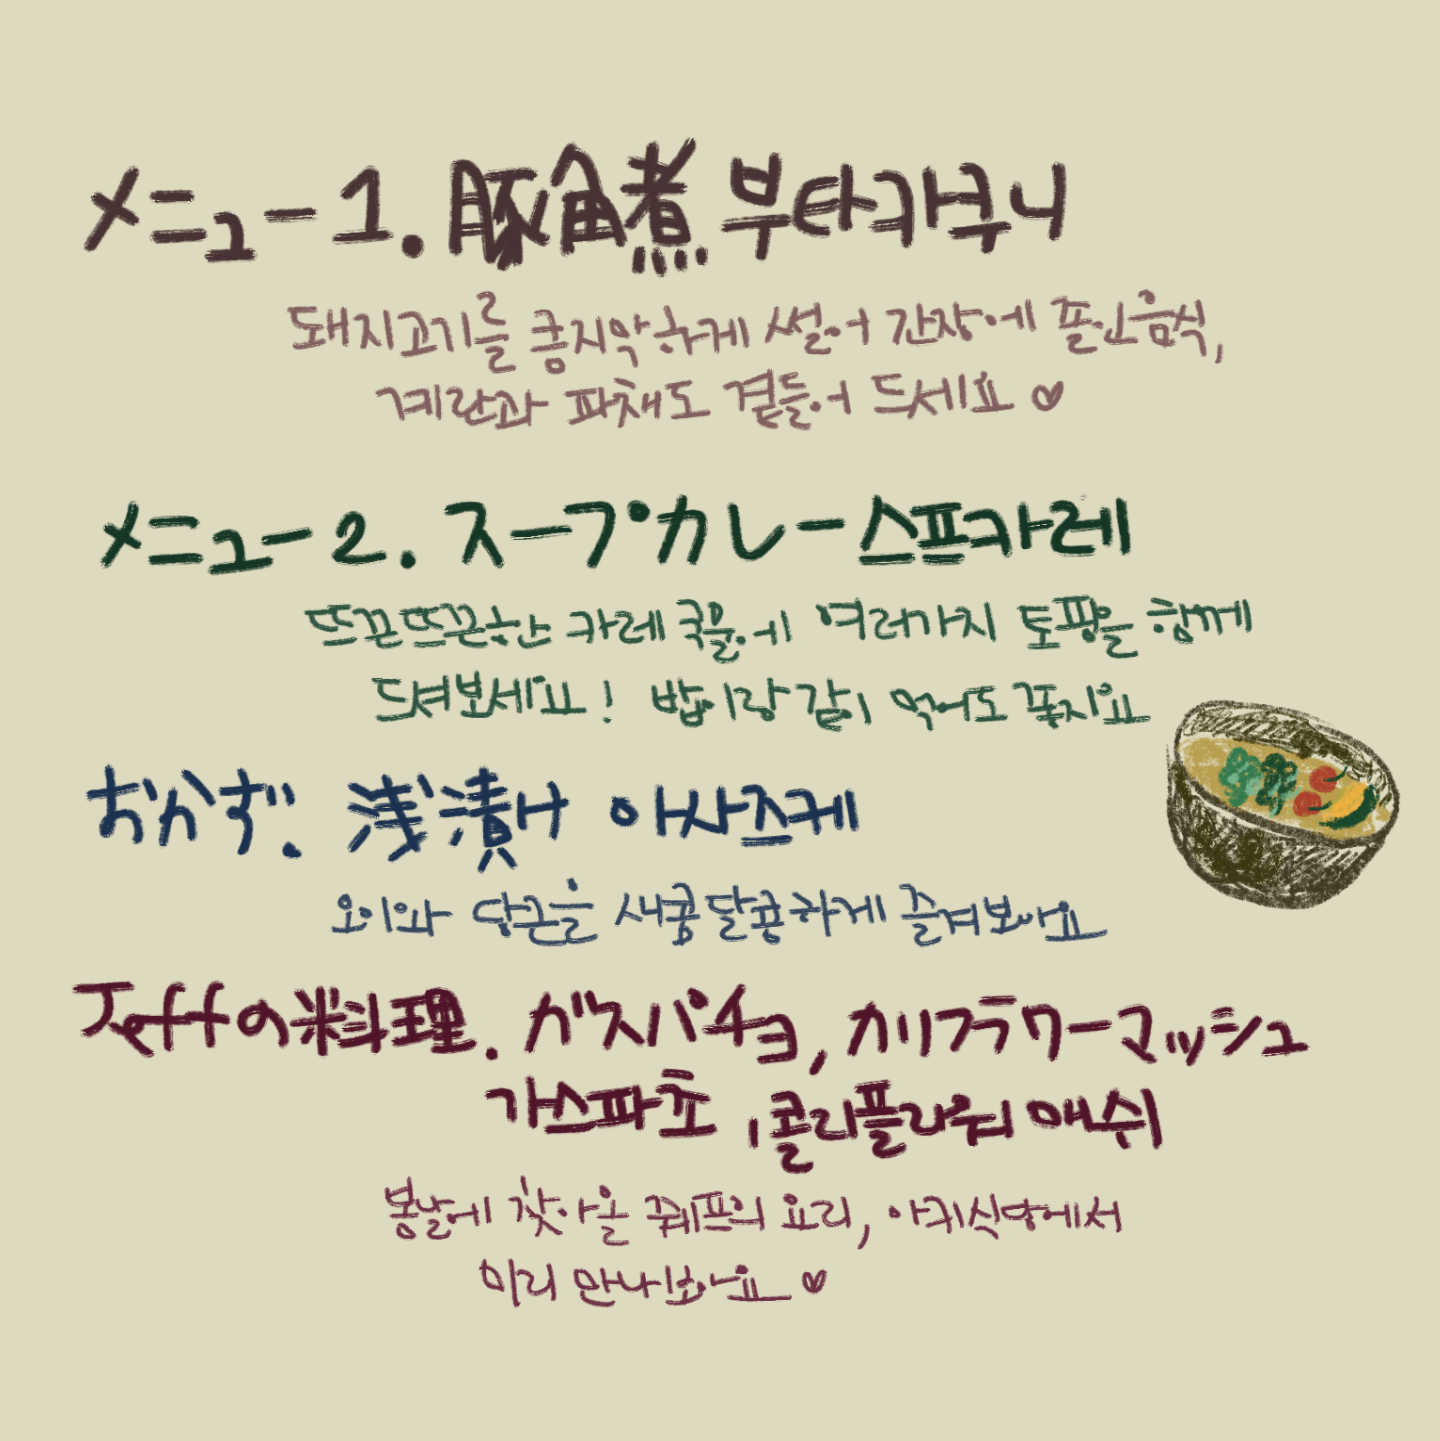 メニュー1. 豚角煮 부타카쿠니
돼지고기를 큼지막하게 썰어 간장에 졸인음식,
계란과 파채도 곁들어 드세요♡
メニュー2. スープカレー 스프카레
뜨끈뜨끈한 카레국물에 여러가지 토핑을 함께
드셔보세요! 밥이랑 같이 먹어도 좋지요
おかず. 浅漬け 아사즈케
오이와 당근을 새콤달콤하게 즐겨보아요
Jeffの料理. ガスパチョ, カリフラワーマッシュ
가스파초, 콜리플라워 매쉬
봄날에 찾아올 쮀프의 요리, 아키식당에서
미리 만나보아요♡